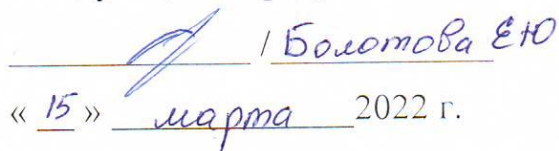 / Болотова ЕЮ
« 15 » марта 2022 г.